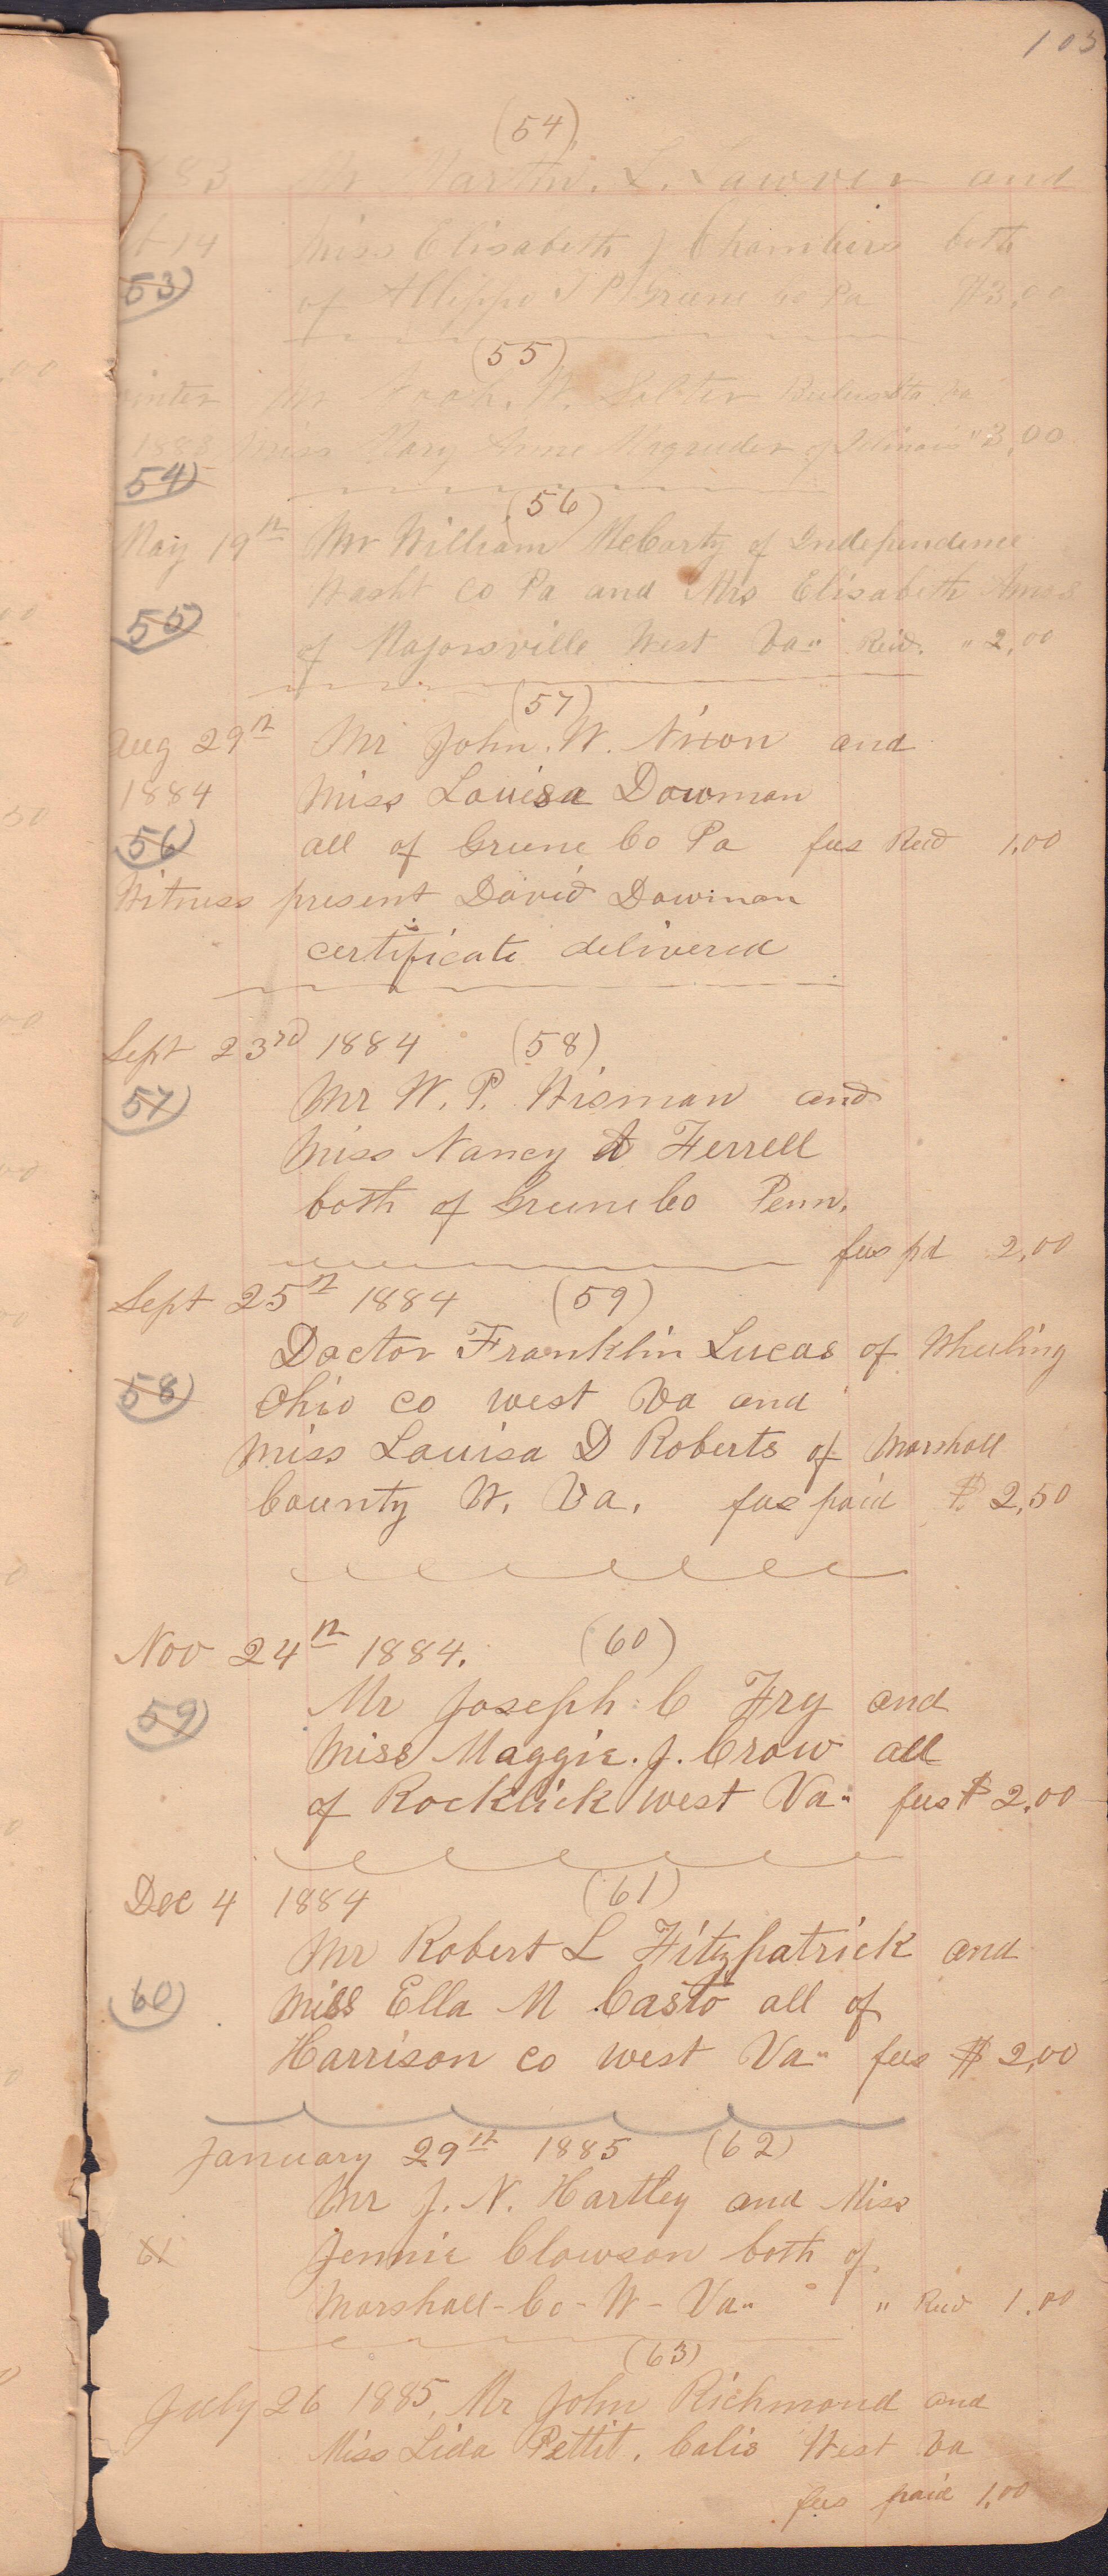 103
(54)
83 Mr Martin. L. Lawver and
t 14 Miss Elisabeth J Chambers both
(53) of Aleppo T P Greene Co Pa $3,00
(55)
inter Mr Noah. W. Salter Va
188 Miss Mary Anne Magruder of Illinois " 3,00
(54)
(56)
May 19th Mr William McCarty of Independence
Washt Co Pa and Mrs Elisabeth Amos
(55)
of Majorsville West Va" Recd. " 2,00
(57)
Aug 29th Mr John. W. Nixon and
1884 Miss Louisa Dowman
(56) all of Greene Co Pa fees Recd 1,00
Witness present David Dowman
certificate delivered
Sept 23rd 1884 (58)
(57) Mr W. P. Wisman and
Miss Nancy A Ferrell
both of Greene Co Penn.
fees pd 2,00
Sept 25th 1884 (59)
Doctor Franklin Lucas of Wheeling
(58) Ohio co west Va and
Miss Louisa D Roberts of Marshall
County W. Va. fees paid $ 2,50
Nov 24th 1884. (60)
(59) Mr Joseph C Fry and
Miss Maggie. J. Crow all
of Rocklick West Va" fees $ 2,00
Dec 4 1884 (61)
Mr Robert L Fitzpatrick and
(60) Miss Ella M Casto all of
Harrison co west Va" fees $ 2,00
January 29th 1885 (62)
Mr J. N. Hartley and Miss
61 Jennie Clowson both of
Marshall - Co - W - Va" " Recd 1,00
(63)
July 26 1885. Mr John Richmond and
Miss Lida Pettit. Calis West Va
fees paid 1,00